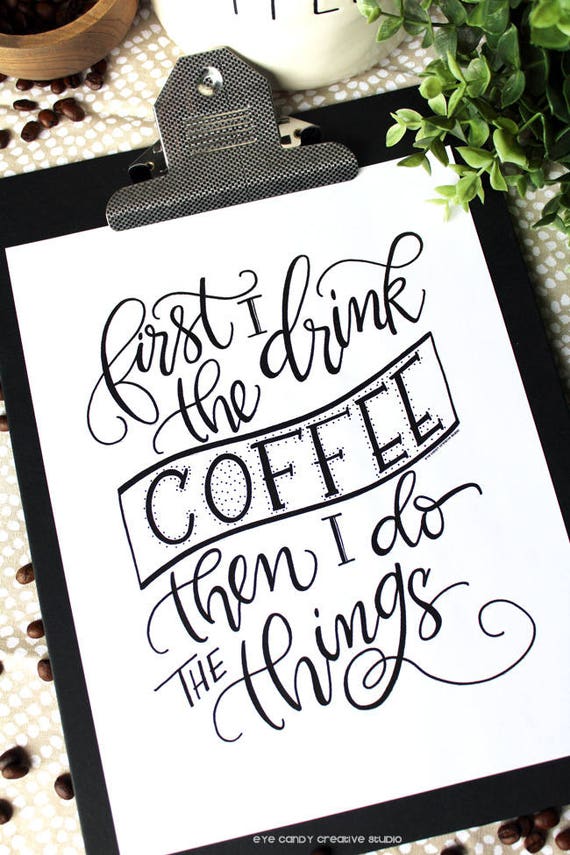 first I drink
the
COFFEE
then I do
THE things
EYE CANDY CREATIVE STUDIO